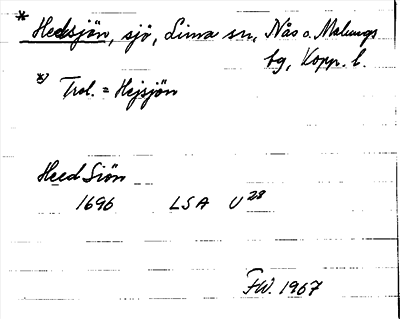 * Hedsjön, sjö, Lima sn, Nås o. Malungs
fg, Kopp. l.
*) Trol. = Hejsjön
Heed Siön
1696 LSA U 28
FW. 1967